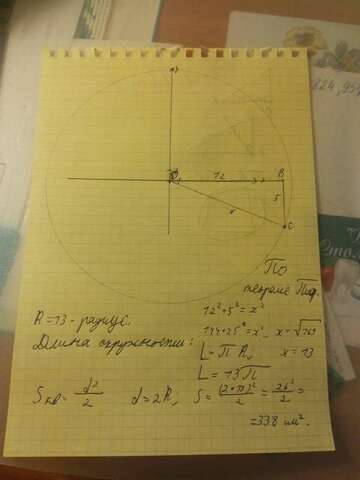 824,95
12
B
5
x
C
По
теореме Пиф.
12² + 5² = x²
144+25² = x², x = √169
R = 13 - радиус.
x = 13
Длина окружности:
L = П R,
L = 13П
Sкв = d²/2 d = 2R, S = (2*13)²/2 = 26²/2 =
= 338 см².